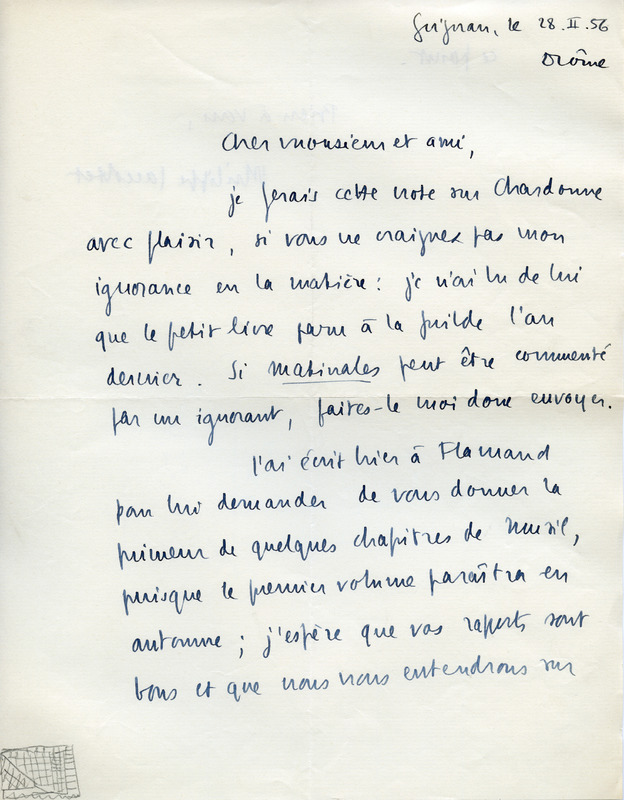 Grignan, le 28.II.56
Drôme
Cher monsieur et ami,
je ferais cette note sur Chardonne
avec plaisir, si vous ne craignez pas mon
ignorance en la matière : je n'ai lu de lui
que le petit livre paru à la Guilde l'an
dernier. Si Matinales peut être commenté
par un ignorant, faites-le moi donc envoyer.
J'ai écrit hier à Flamand
pour lui demander de vous donner la
primeur de quelques chapitres de Musil,
puisque le premier volume paraîtra en
automne ; j'espère que vos raports sont
bons et que nous nous entendrons sur
ce point.
Bien à vous,
Philippe Jaccottet